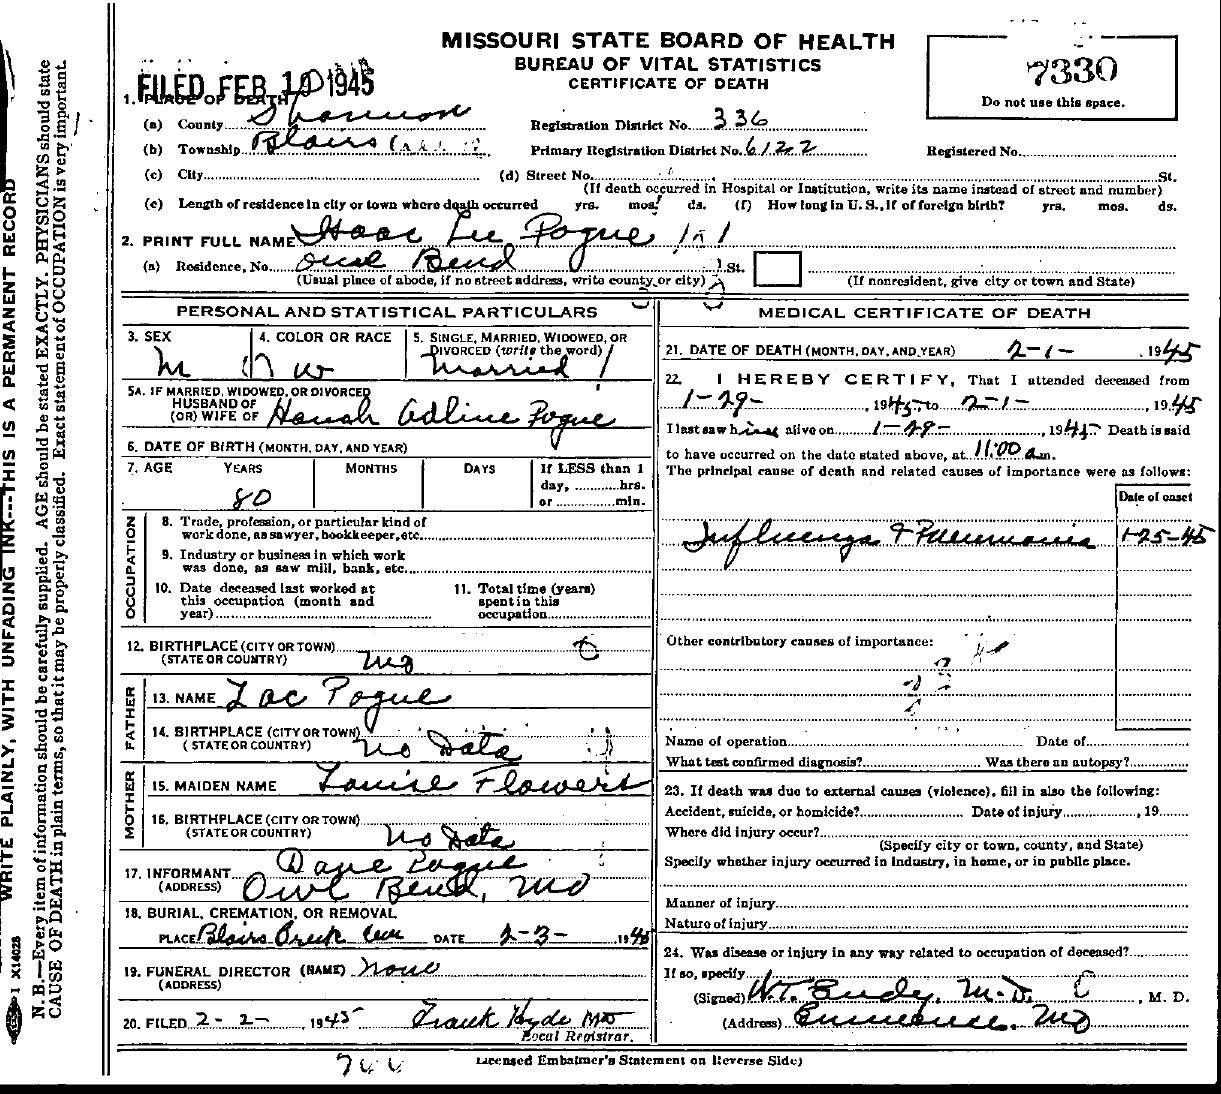 MISSOURI STATE BOARD OF HEALTH
BUREAU OF VITAL STATISTICS
CERTIFICATE OF DEATH
7330
Do not use this space.
FILED FEB 10 1945
1. PLACE OF DEATH
(a) County Shannon
Registration District No. 336
(b) Township Blairs
Primary Registration District No. 6122
Registered No.
(c) City (d) Street No. St.
(If death occurred in Hospital or Institution, write its name instead of street and number)
(e) Length of residence in city or town where death occurred yrs. mos. ds. (f) How long in U. S., if of foreign birth? yrs. mos. ds.
2. PRINT FULL NAME Isaac Lee Pogue
(a) Residence, No. Owl Bend St.
(Usual place of abode, if no street address, write county or city) (If nonresident, give city or town and State)
PERSONAL AND STATISTICAL PARTICULARS
3. SEX 4. COLOR OR RACE 5. SINGLE, MARRIED, WIDOWED, OR
DIVORCED (write the word)
M W Married
5A. IF MARRIED, WIDOWED, OR DIVORCED
HUSBAND OF
(OR) WIFE OF Adline Pogue
6. DATE OF BIRTH (MONTH, DAY, AND YEAR)
7. AGE YEARS MONTHS DAYS If LESS than 1
day, hrs.
80 or min.
OCCUPATION
8. Trade, profession, or particular kind of
work done, as sawyer, bookkeeper, etc.
9. Industry or business in which work
was done, as saw mill, bank, etc.
10. Date deceased last worked at
this occupation (month and
year)
11. Total time (years)
spent in this
occupation
12. BIRTHPLACE (CITY OR TOWN)
(STATE OR COUNTRY) Mo
FATHER
13. NAME Zac Pogue
14. BIRTHPLACE (CITY OR TOWN)
(STATE OR COUNTRY) No Data
MOTHER
15. MAIDEN NAME Louise Flowers
16. BIRTHPLACE (CITY OR TOWN)
(STATE OR COUNTRY) No Data
17. INFORMANT Dave Pogue
(ADDRESS) Owl Bend, Mo
18. BURIAL, CREMATION, OR REMOVAL
PLACE Blairs Creek Cem DATE 2-3- 1945
19. FUNERAL DIRECTOR (NAME) None
(ADDRESS)
20. FILED 2-2- 1945 Frank Hyde MD
Local Registrar.
MEDICAL CERTIFICATE OF DEATH
21. DATE OF DEATH (MONTH, DAY, AND YEAR) 2-1- , 1945
22. I HEREBY CERTIFY, That I attended deceased from
1-29- , 1945, to 2-1- , 1945
I last saw him alive on 1-29- , 1945 Death is said
to have occurred on the date stated above, at 11:00 a.m.
The principal cause of death and related causes of importance were as follows:
Date of onset
Influenza & Pneumonia 1-25-45
Other contributory causes of importance:
Name of operation Date of
What test confirmed diagnosis? Was there an autopsy?
23. If death was due to external causes (violence), fill in also the following:
Accident, suicide, or homicide? Date of injury , 19
Where did injury occur?
(Specify city or town, county, and State)
Specify whether injury occurred in industry, in home, or in public place.
Manner of injury
Nature of injury
24. Was disease or injury in any way related to occupation of deceased?
If so, specify
(Signed) W.T. Eudy, M.D. , M. D.
(Address) Eminence, Mo
Licensed Embalmer's Statement on Reverse Side)
WRITE PLAINLY, WITH UNFADING INK---THIS IS A PERMANENT RECORD
N. B.—Every item of information should be carefully supplied. AGE should be stated EXACTLY. PHYSICIANS should state
CAUSE OF DEATH in plain terms, so that it may be properly classified. Exact statement of OCCUPATION is very important.
1 X14028